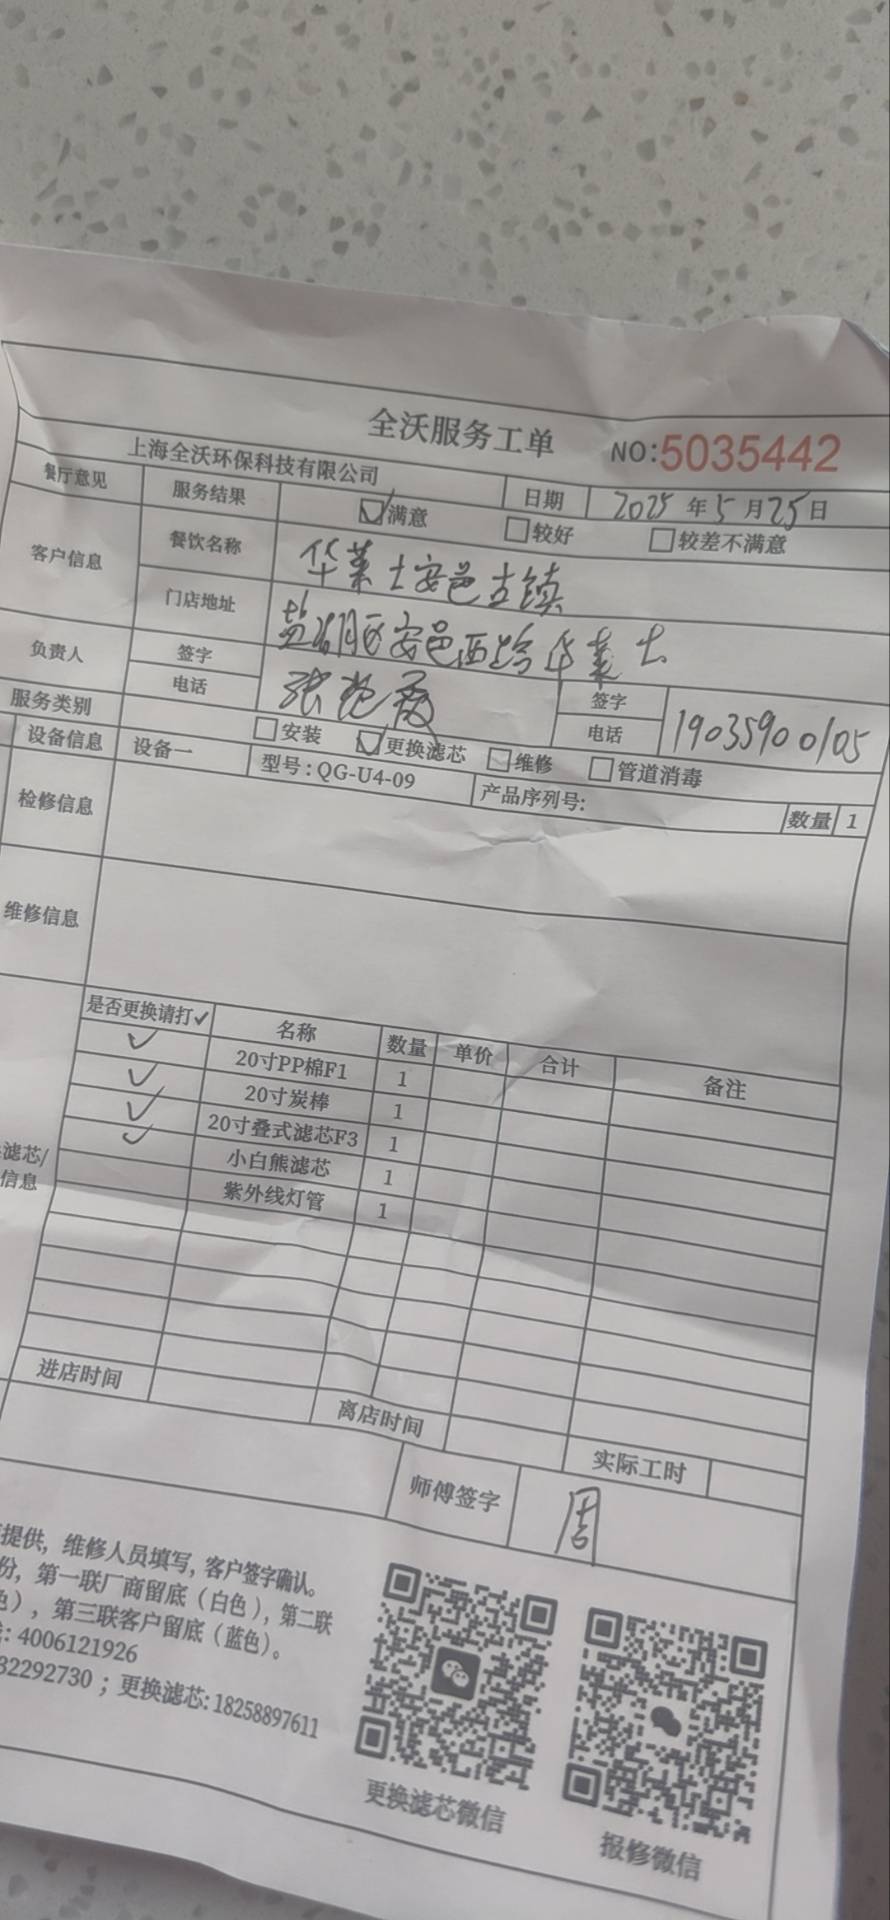 全沃服务工单 NO:5035442
上海全沃环保科技有限公司 日期 2025 年 5 月 25 日
餐厅意见 服务结果 ☑满意 □较好 □较差不满意
客户信息 餐饮名称 华莱士安邑古镇
门店地址 盐湖区安邑西路华莱士
负责人 签字 张 签字
电话 电话 19035900105
服务类别 □安装 ☑更换滤芯 □维修 □管道消毒
设备信息 设备一 型号:QG-U4-09 产品序列号: 数量 1
检修信息
维修信息
是否更换请打✓ 名称 数量 单价 合计 备注
✓ 20寸PP棉F1 1
✓ 20寸炭棒 1
✓ 20寸叠式滤芯F3 1
✓ 小白熊滤芯 1
紫外线灯管 1
滤芯/
信息
进店时间 离店时间 实际工时
师傅签字 周
提供，维修人员填写，客户签字确认。
份，第一联厂商留底（白色），第二联
色），第三联客户留底（蓝色）。
: 4006121926
32292730 ；更换滤芯: 18258897611
更换滤芯微信
报修微信